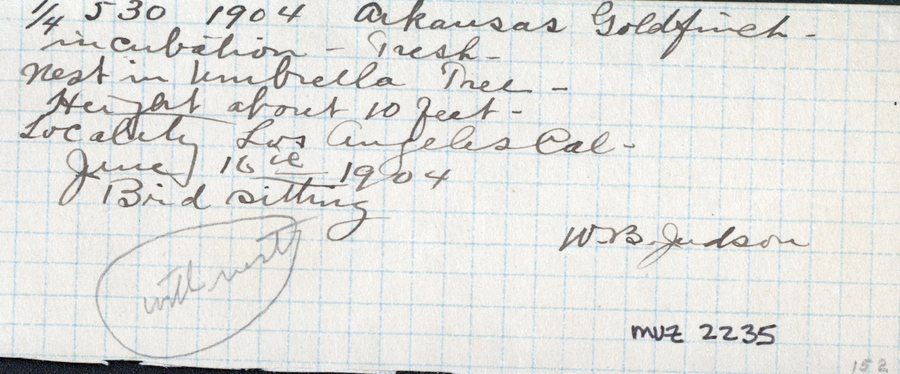 1/4 530 1904 Arkansas Goldfinch -
incubation - Fresh -
Nest in Umbrella Tree -
Height about 10 feet -
Locality Los Angeles Cal -
June 16th 1904
Bird sitting
W. B. Judson
with nest
MVZ 2235
152